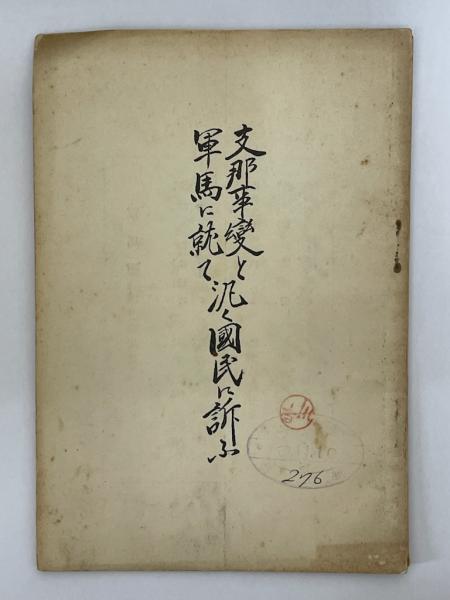 支那事變と
軍馬に就て汎く國民に訴ふ
276